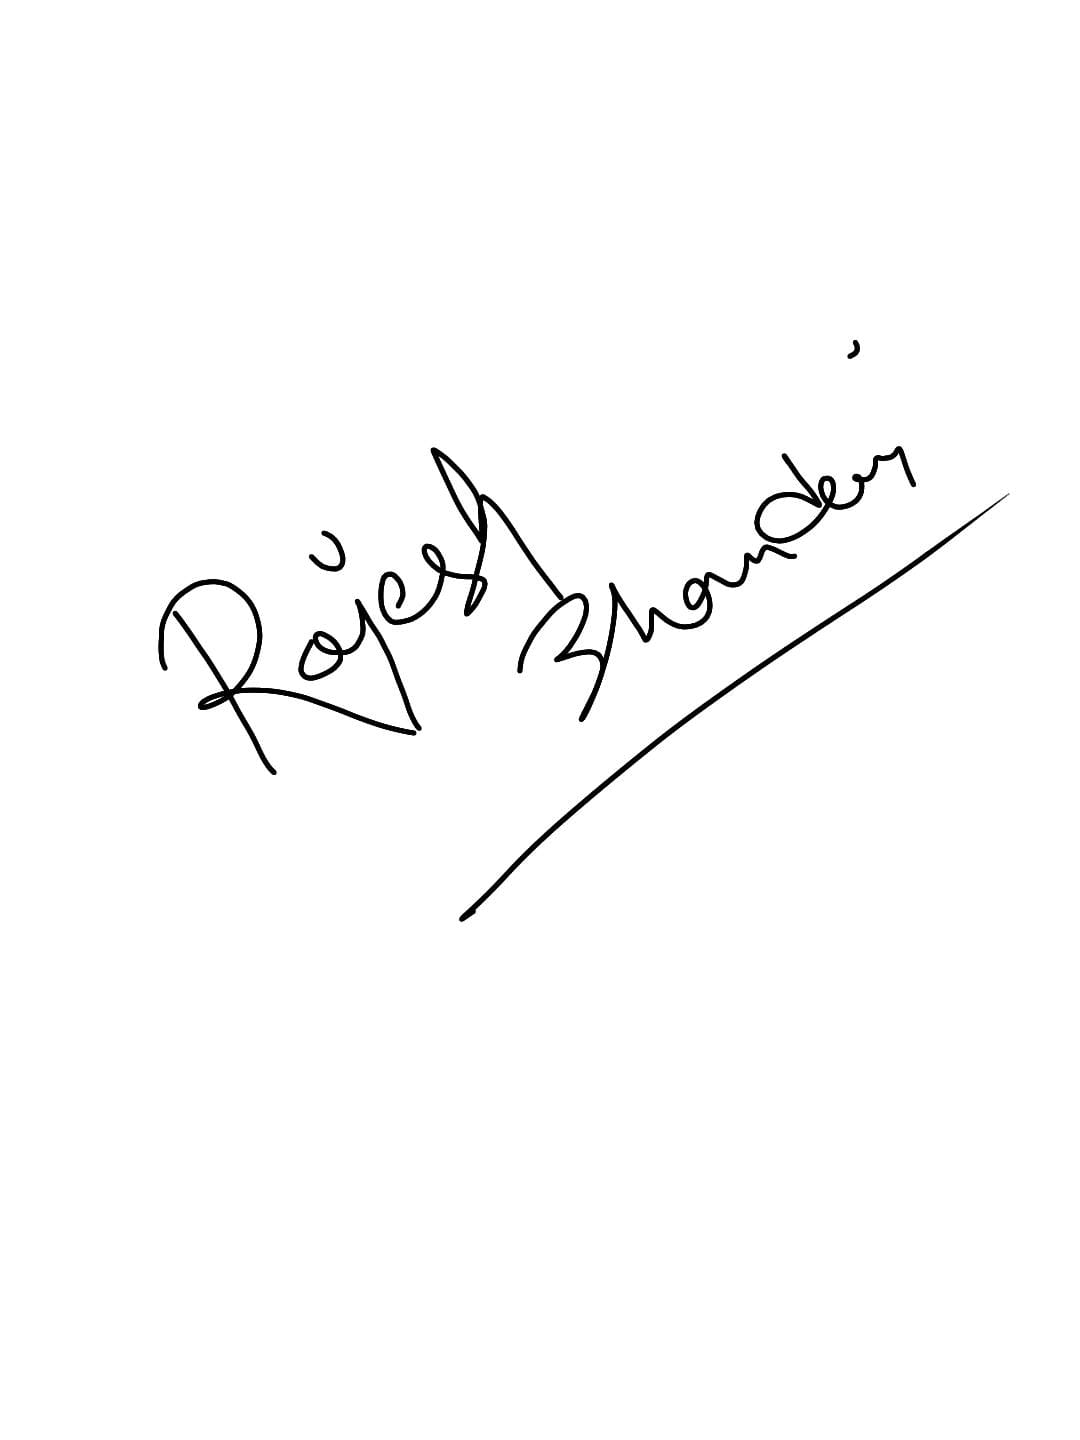 Rajesh Bhanderi